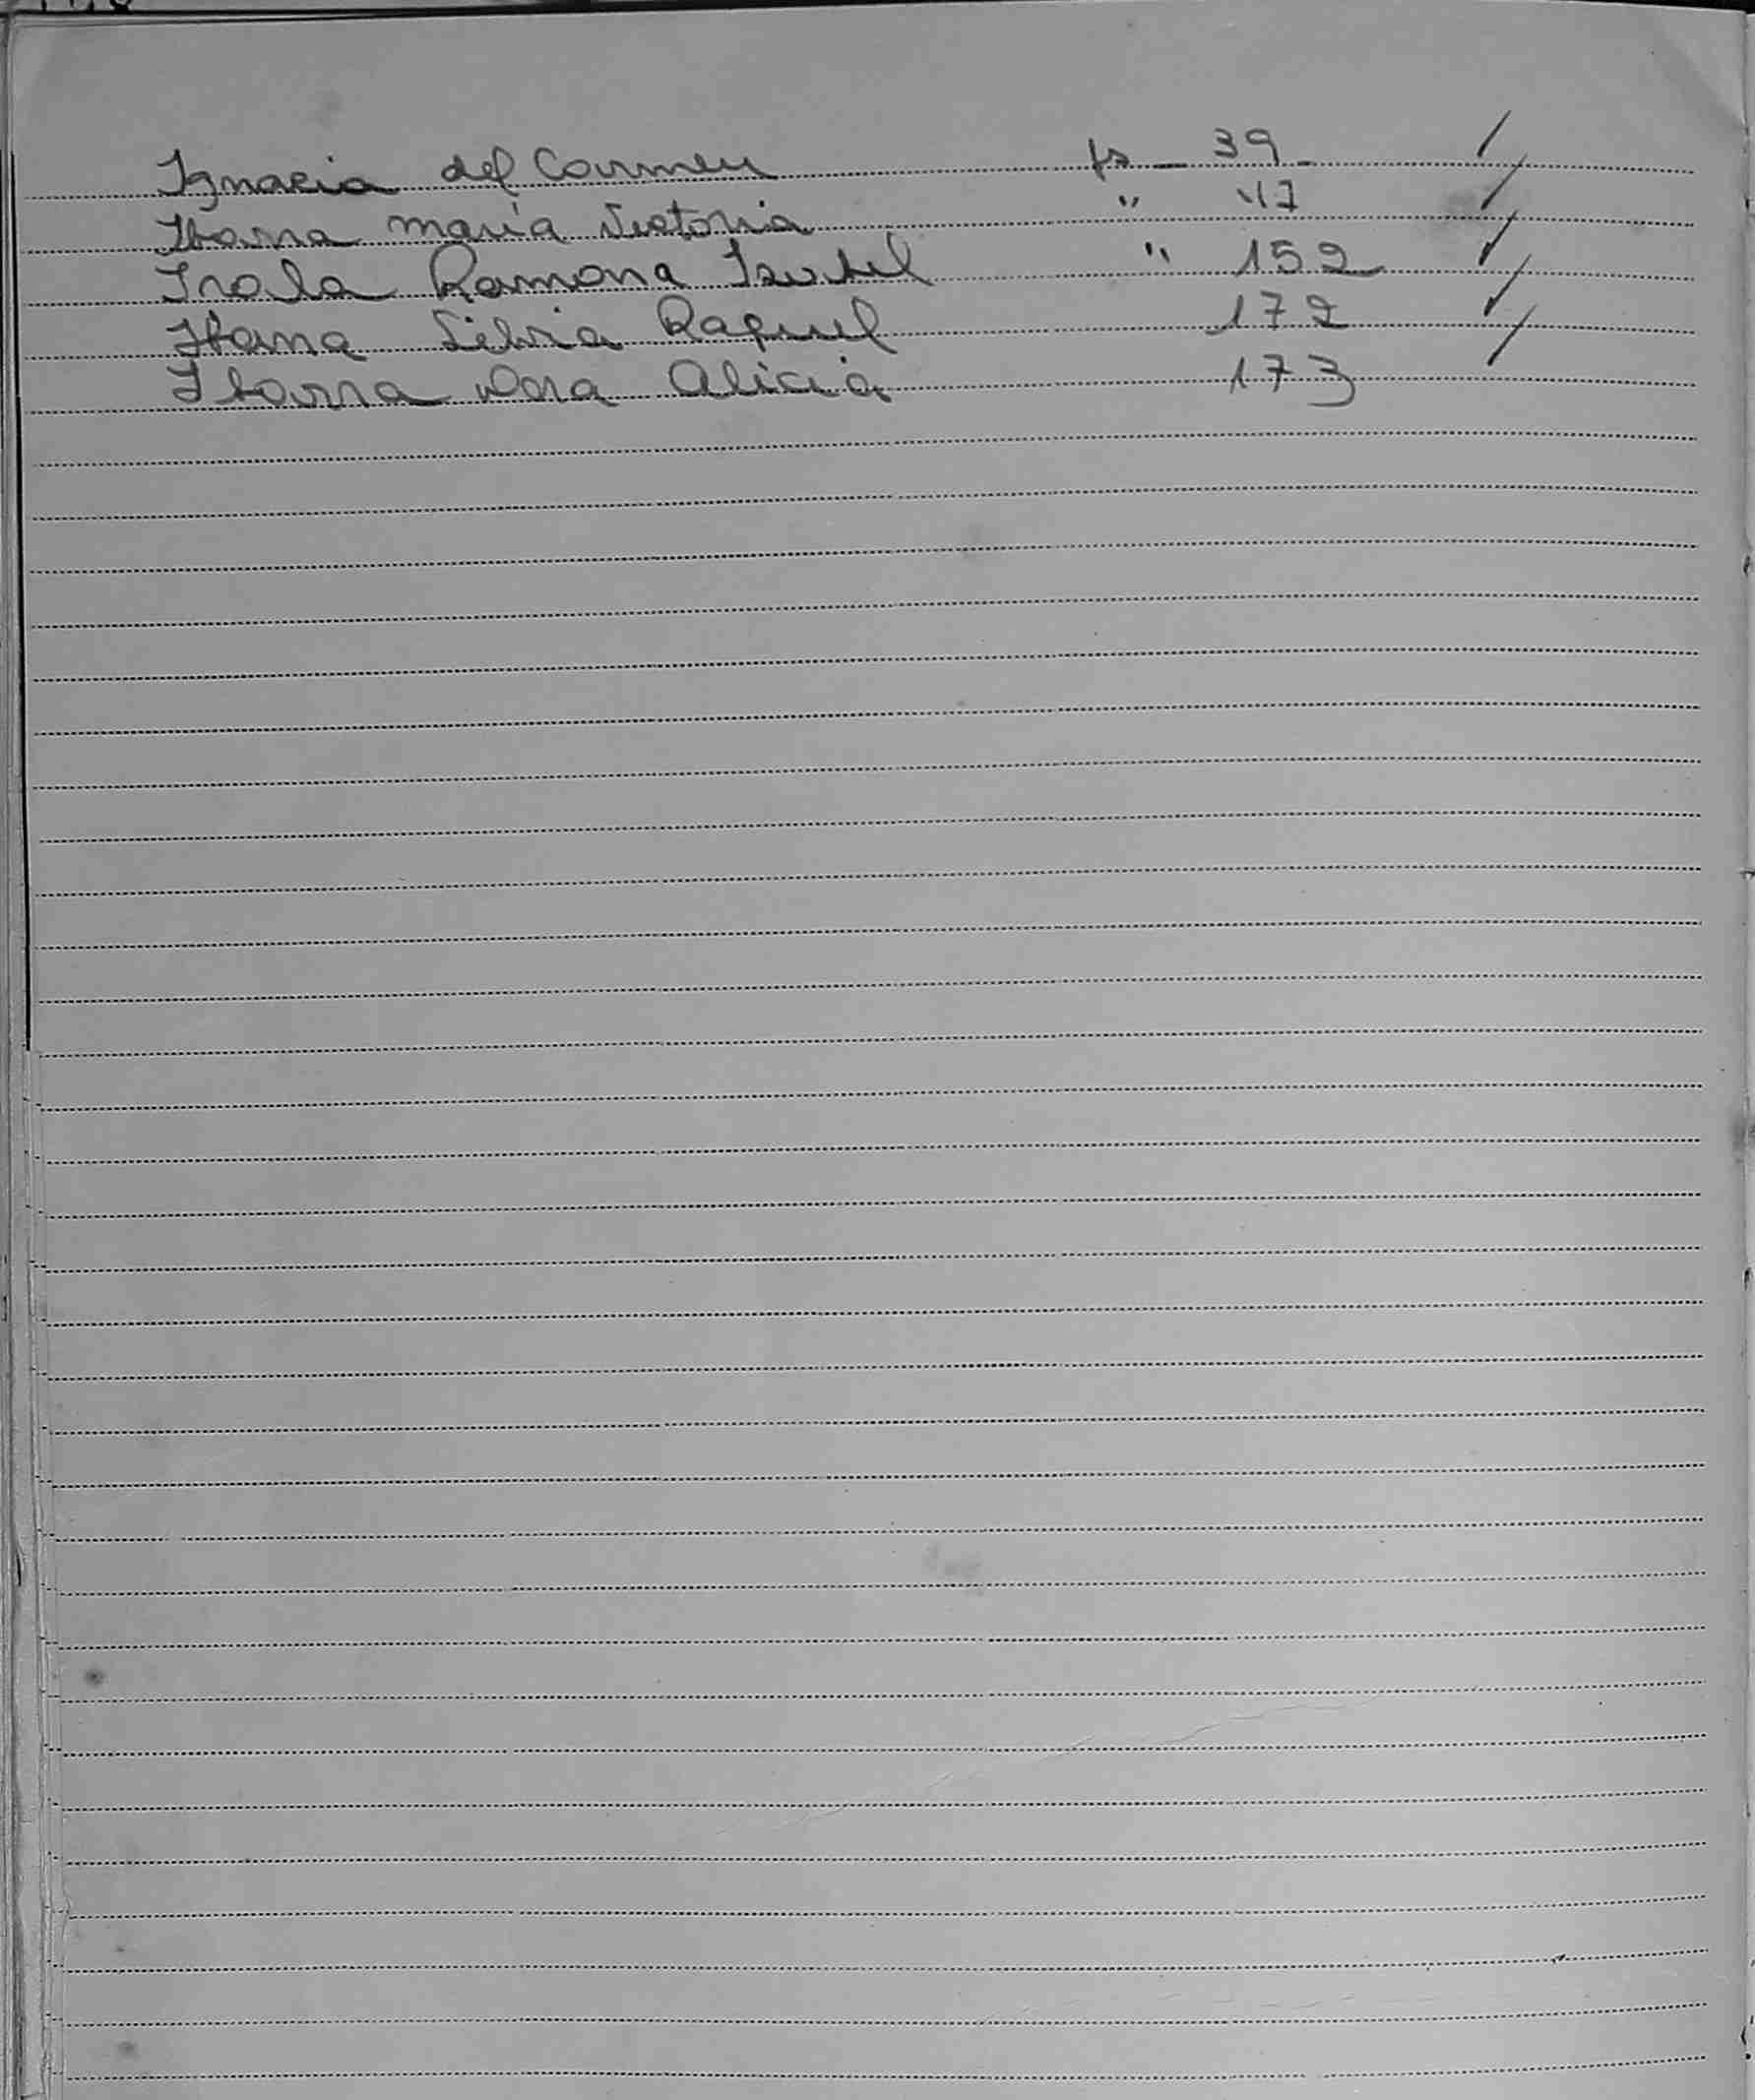 Ignacia del Carmen fs - 39 -
Ibarra maría Victoria " 47
Irala Ramona Isabel " 152
Ibarra Silvia Raquel 172
Ibarra Dora Alicia 173